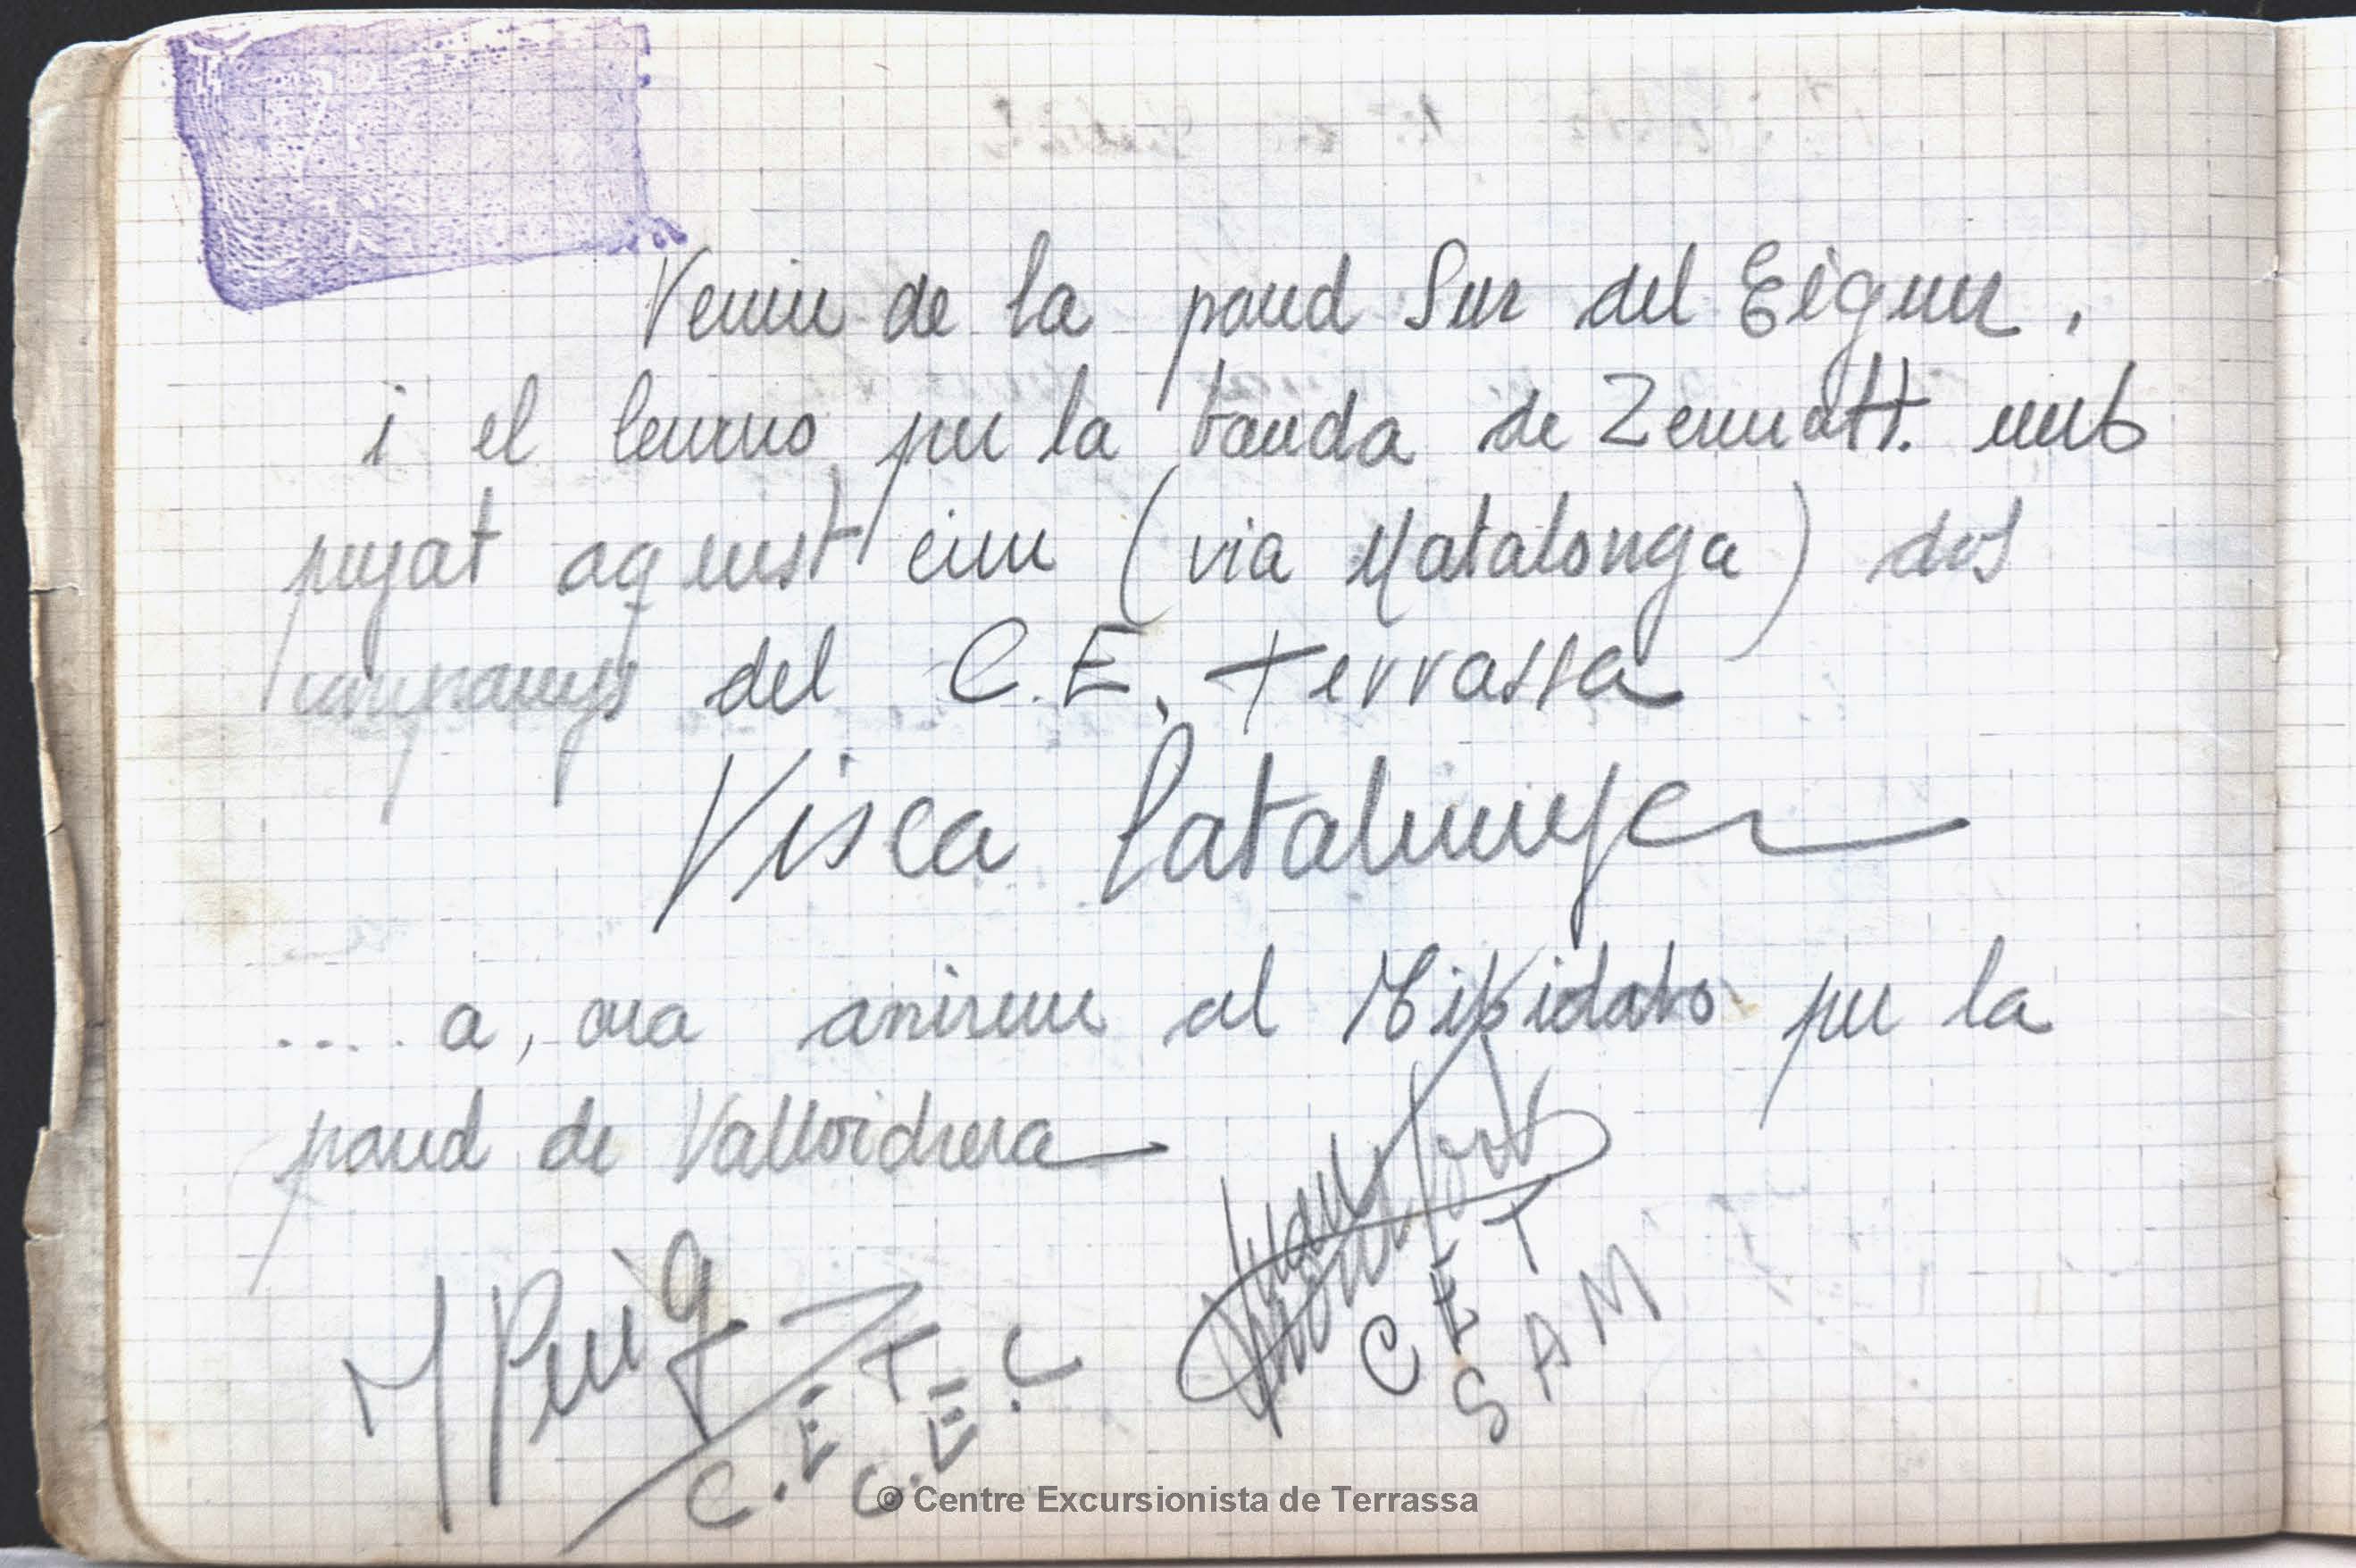 Venim de la pared Sur del Eiguer,
i el Cervino per la banda de Zermatt. emb
pujat aquest cim (via Matalonga) dos
companys del C.E. Terrassa
Visca Catalunya
.... a, ara anirem al per la
pared de Vallvidrera
M Puig
C.E.T
C.E.C
C E T
S A M
© Centre Excursionista de Terrassa